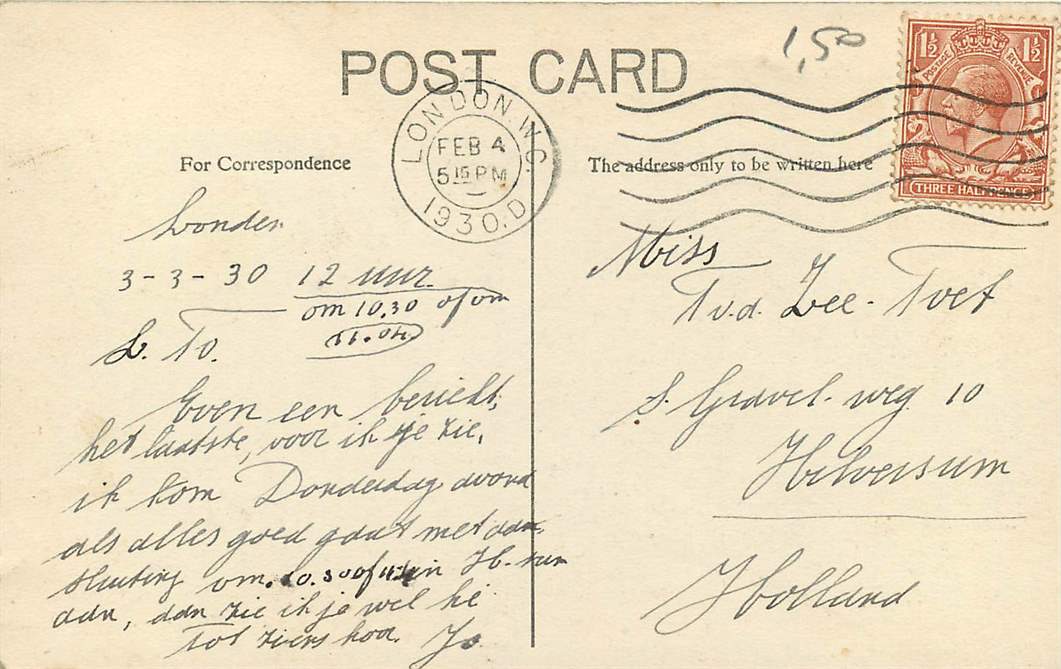 1,50
POST CARD
1½ 1½
POSTAGE REVENUE
THREE HALFPENCE
LONDON. W.C.
FEB 4
5 15 PM
1930. D
For Correspondence
The address only to be written here
Londen
3-3-30 12 uur
om 10.30 of om
11.04
L. To.
Even een bericht,
het laatste, voor ik je zie,
ik kom Donderdag avond
als alles goed gaat met aan
sluiting om 10.30 of in H-sum
aan, dan zie ik je wel hé
tot ziens hoor. Jo
Miss
T v.d. Zee - Tvet
S. Gravel. weg 10
Hilversum
Holland